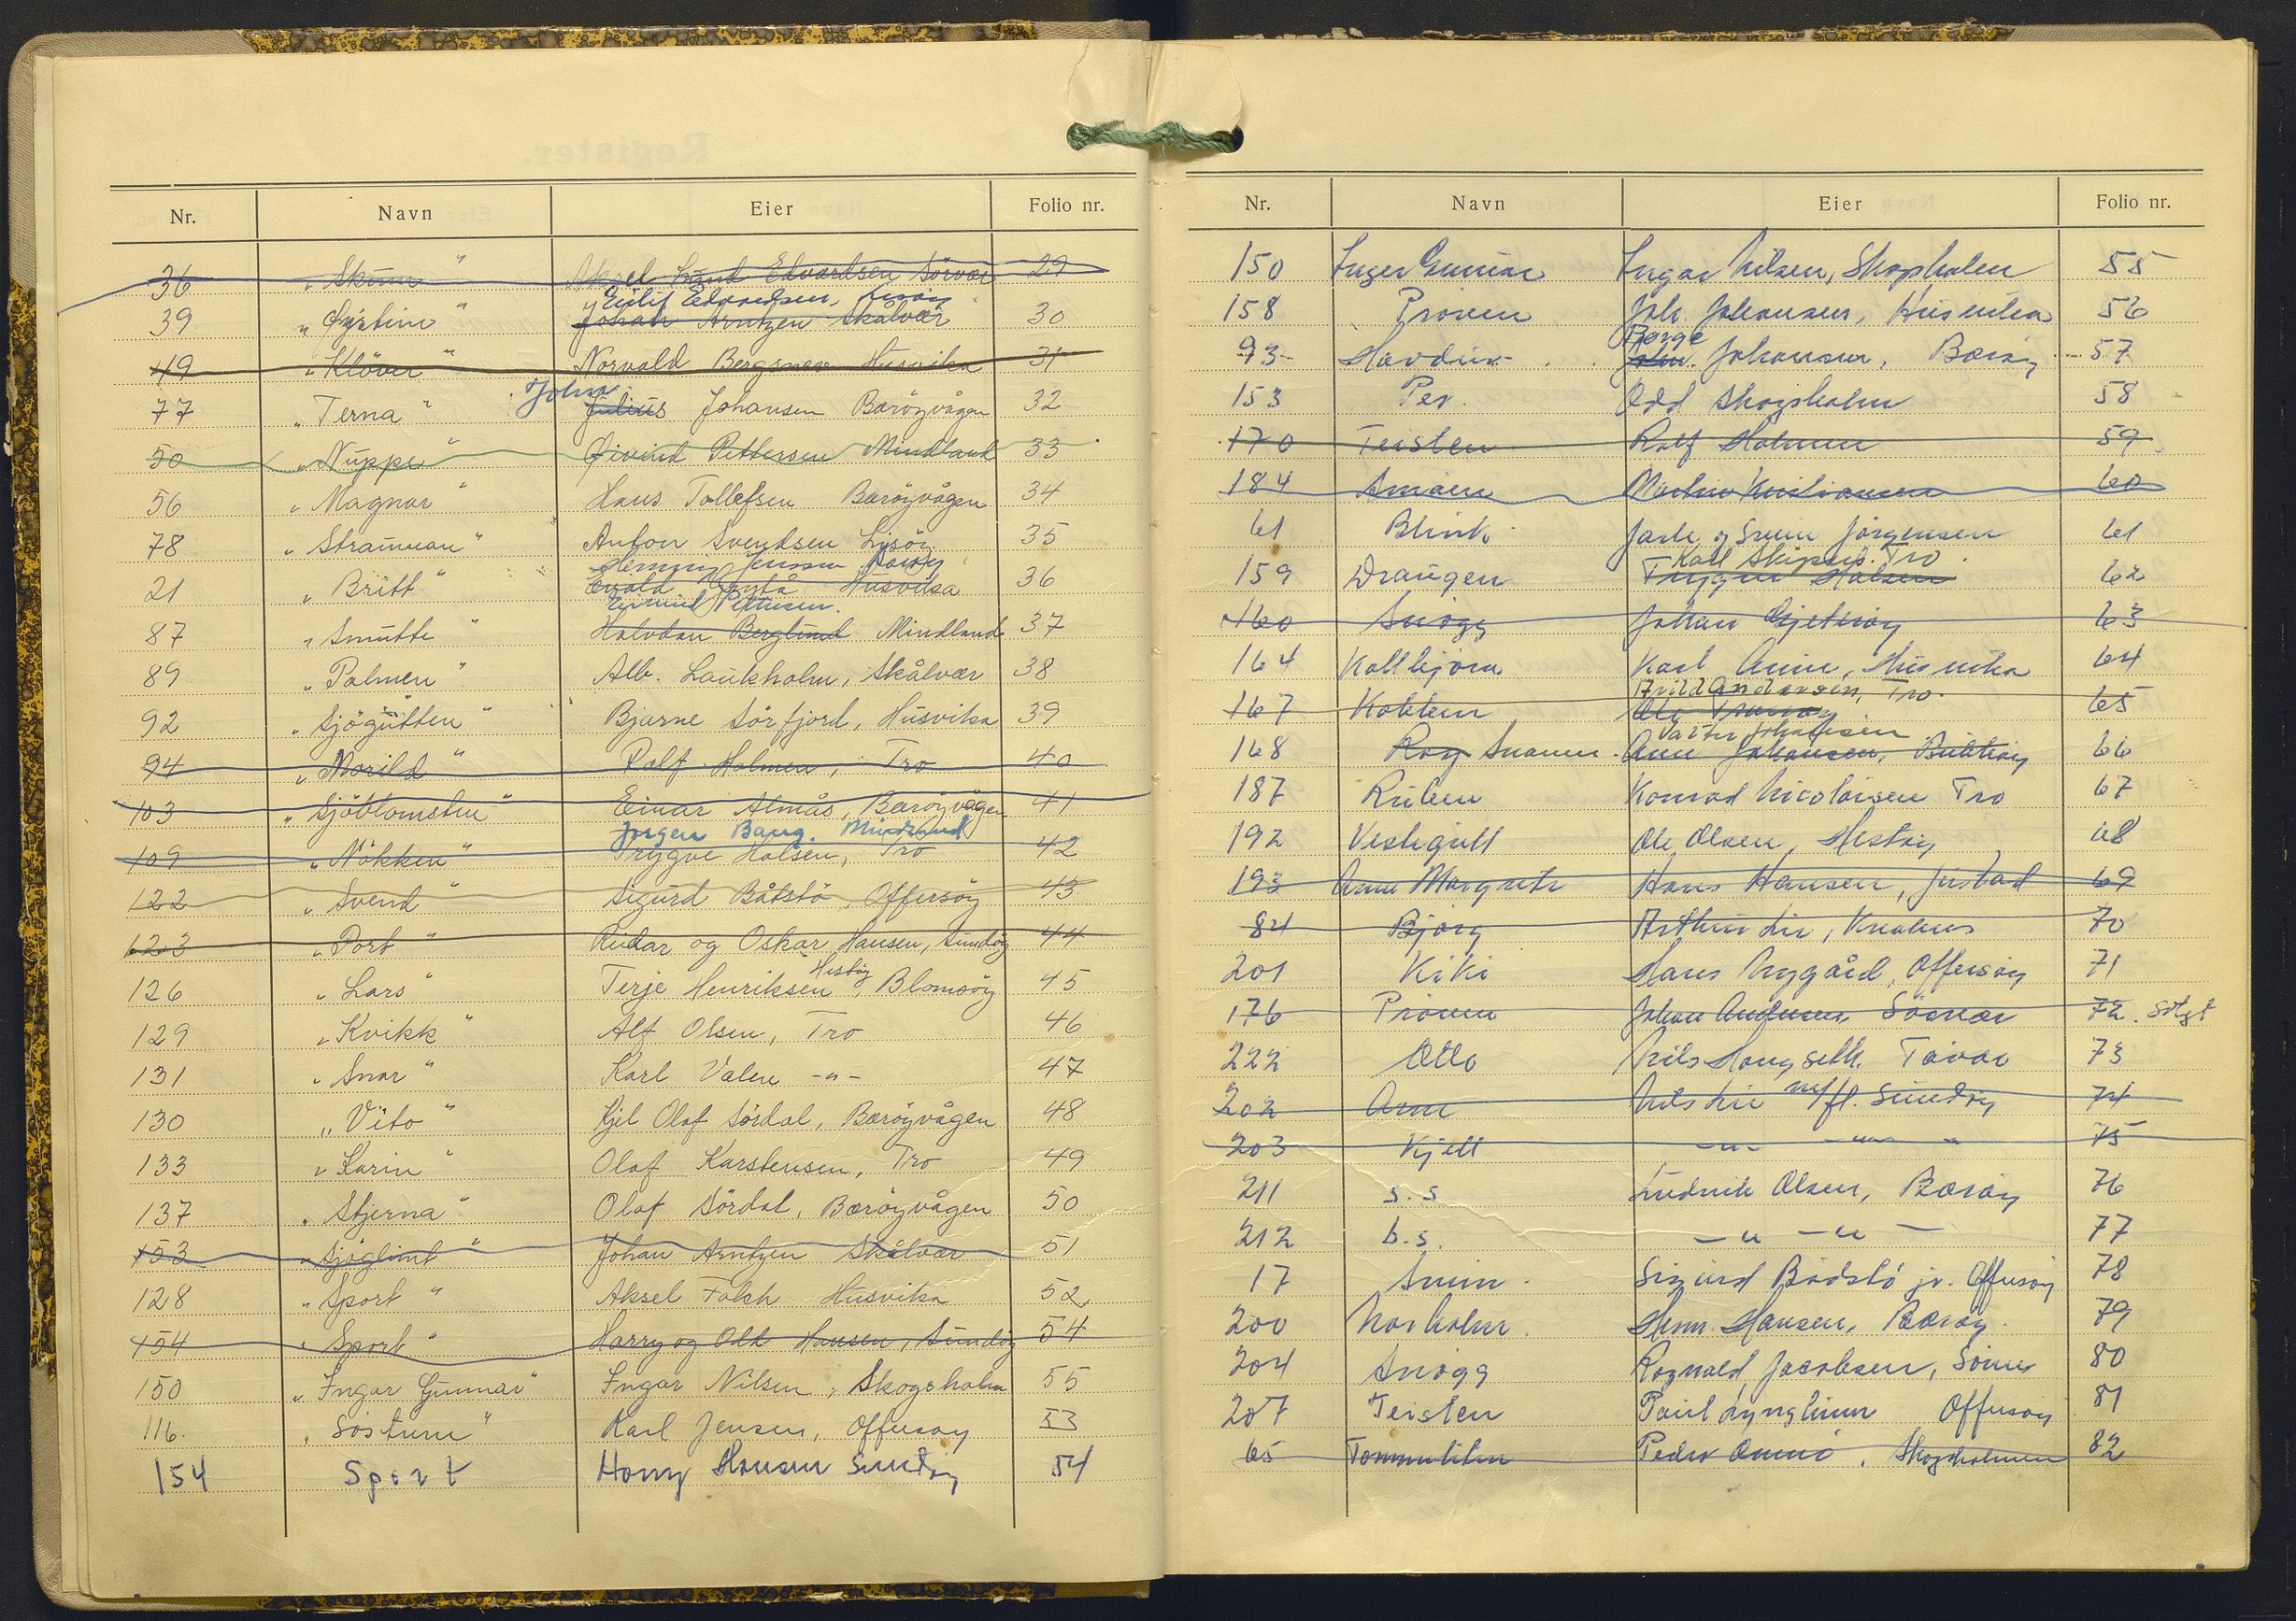 Nr. Navn Eier Folio nr.
36 „ " Aksel Lund Edvardsen Sörvær 29
Eilif Edvardsen,
39 „ Öystein " Johan Arntzen Skålvær 30
49 „ Klöver " Norvald Husvika 31
John
77 „ Terna " Julius Johansen Baröyvågen 32
50 „ Nuppe " Øivind Pettersen Mindland 33
56 „ Magnar " Hans Tollefsen Baröyvågen 34
78 „ Straumen " Anton Svendsen Lisöy 35
Henning Jenssen
21 „ Britt " Husvika 36
Eivind Pettersen.
87 „ Snutte " Halvdan Berglund Mindland 37
89 „ Palmen " Alb. Laukholm, Skålvær 38
92 „ Sjögutten " Bjarne Sörfjord, Husvika 39
94 „ Morild " Rolf Holmen, Tro 40
103 „ Sjöblomsten " Einar Almås, Baröyvågen 41
Jörgen Bang. Mindland
109 „ Nökken " Trygve Halsen, Tro 42
122 „ Svend " Sigurd Båtstö, Offersöy 43
123 „ Port " Reidar og Oskar Hansen, Sundöy 44
Hestöy
126 „ Lars " Terje Henriksen, Blomsöy 45
129 „ Kvikk " Alf Olsen, Tro 46
131 „ Snar " Karl Valen -„- 47
130 „ Vito " Kjel Olaf Sördal, Baröyvågen 48
133 „ Karin " Olaf Karstensen, Tro 49
137 „ Stjerna " Olaf Sördal, Baröyvågen 50
153 „ Sjöglimt " Johan Arntzen Skålvær 51
128 „ Sport " Aksel Falch Husvika 52
154 „ Sport " Harry og Odd Hansen, Sundöy 54
150 „ Ingar Gunnar " Ingar Nilsen, Skogsholm 55
116. „ " Karl Jensen, Offersöy 53
154 Sport Harry Hansen Sundöy 54
Nr. Navn Eier Folio nr.
150 Inger Gunnar Ingar Nilsen, Skogsholm 55
158 Pröven Joh. Johansen, Husvika 56
Börge
93 Havdur Johansen, Baröy 57
153 Per. Odd Skogsholm 58
170 Teisten Rolf Holmen 59
184 Martin Kristiansen 60
61 Blink. Jarle og Svein Jörgensen 61
Karl Tro
159 Draugen Trygve Halsen 62
160 Snögg Johan 63
164 Kollbjörn Karl Husvika 64
Arild Andersen, Tro.
167 Kobben 65
Johansen
168 Roy Svanen Arne Johansen, 66
187 Ruben Konrad Nicolaisen Tro 67
192 Vestegutt Ole Olsen, Hestöy 68
193 Anne Margrete Hans Hansen, 69
84 Bjørg Arthur Lie, 70
201 Kiki Hans Nygård, Offersöy 71
176 Pröven Johan 72. Solgt
222 Otto Nils Haugseth. 73
202 Arne Nils Lie m/fl. Sundöy 74
203 Kjell -„- -„- - 75
211 s. s Ludvik Olsen, Baröy 76
212 b.s. -„ -„ - 77
17 Sigurd Bådstö jr. Offersöy 78
200 Norholm. Herm. Hansen, Baröy. 79
204 Snögg Rognald Jacobsen, 80
207 Teisten Paul Offersöy 81
65 Tommeliten Peder , Skogsholmen 82